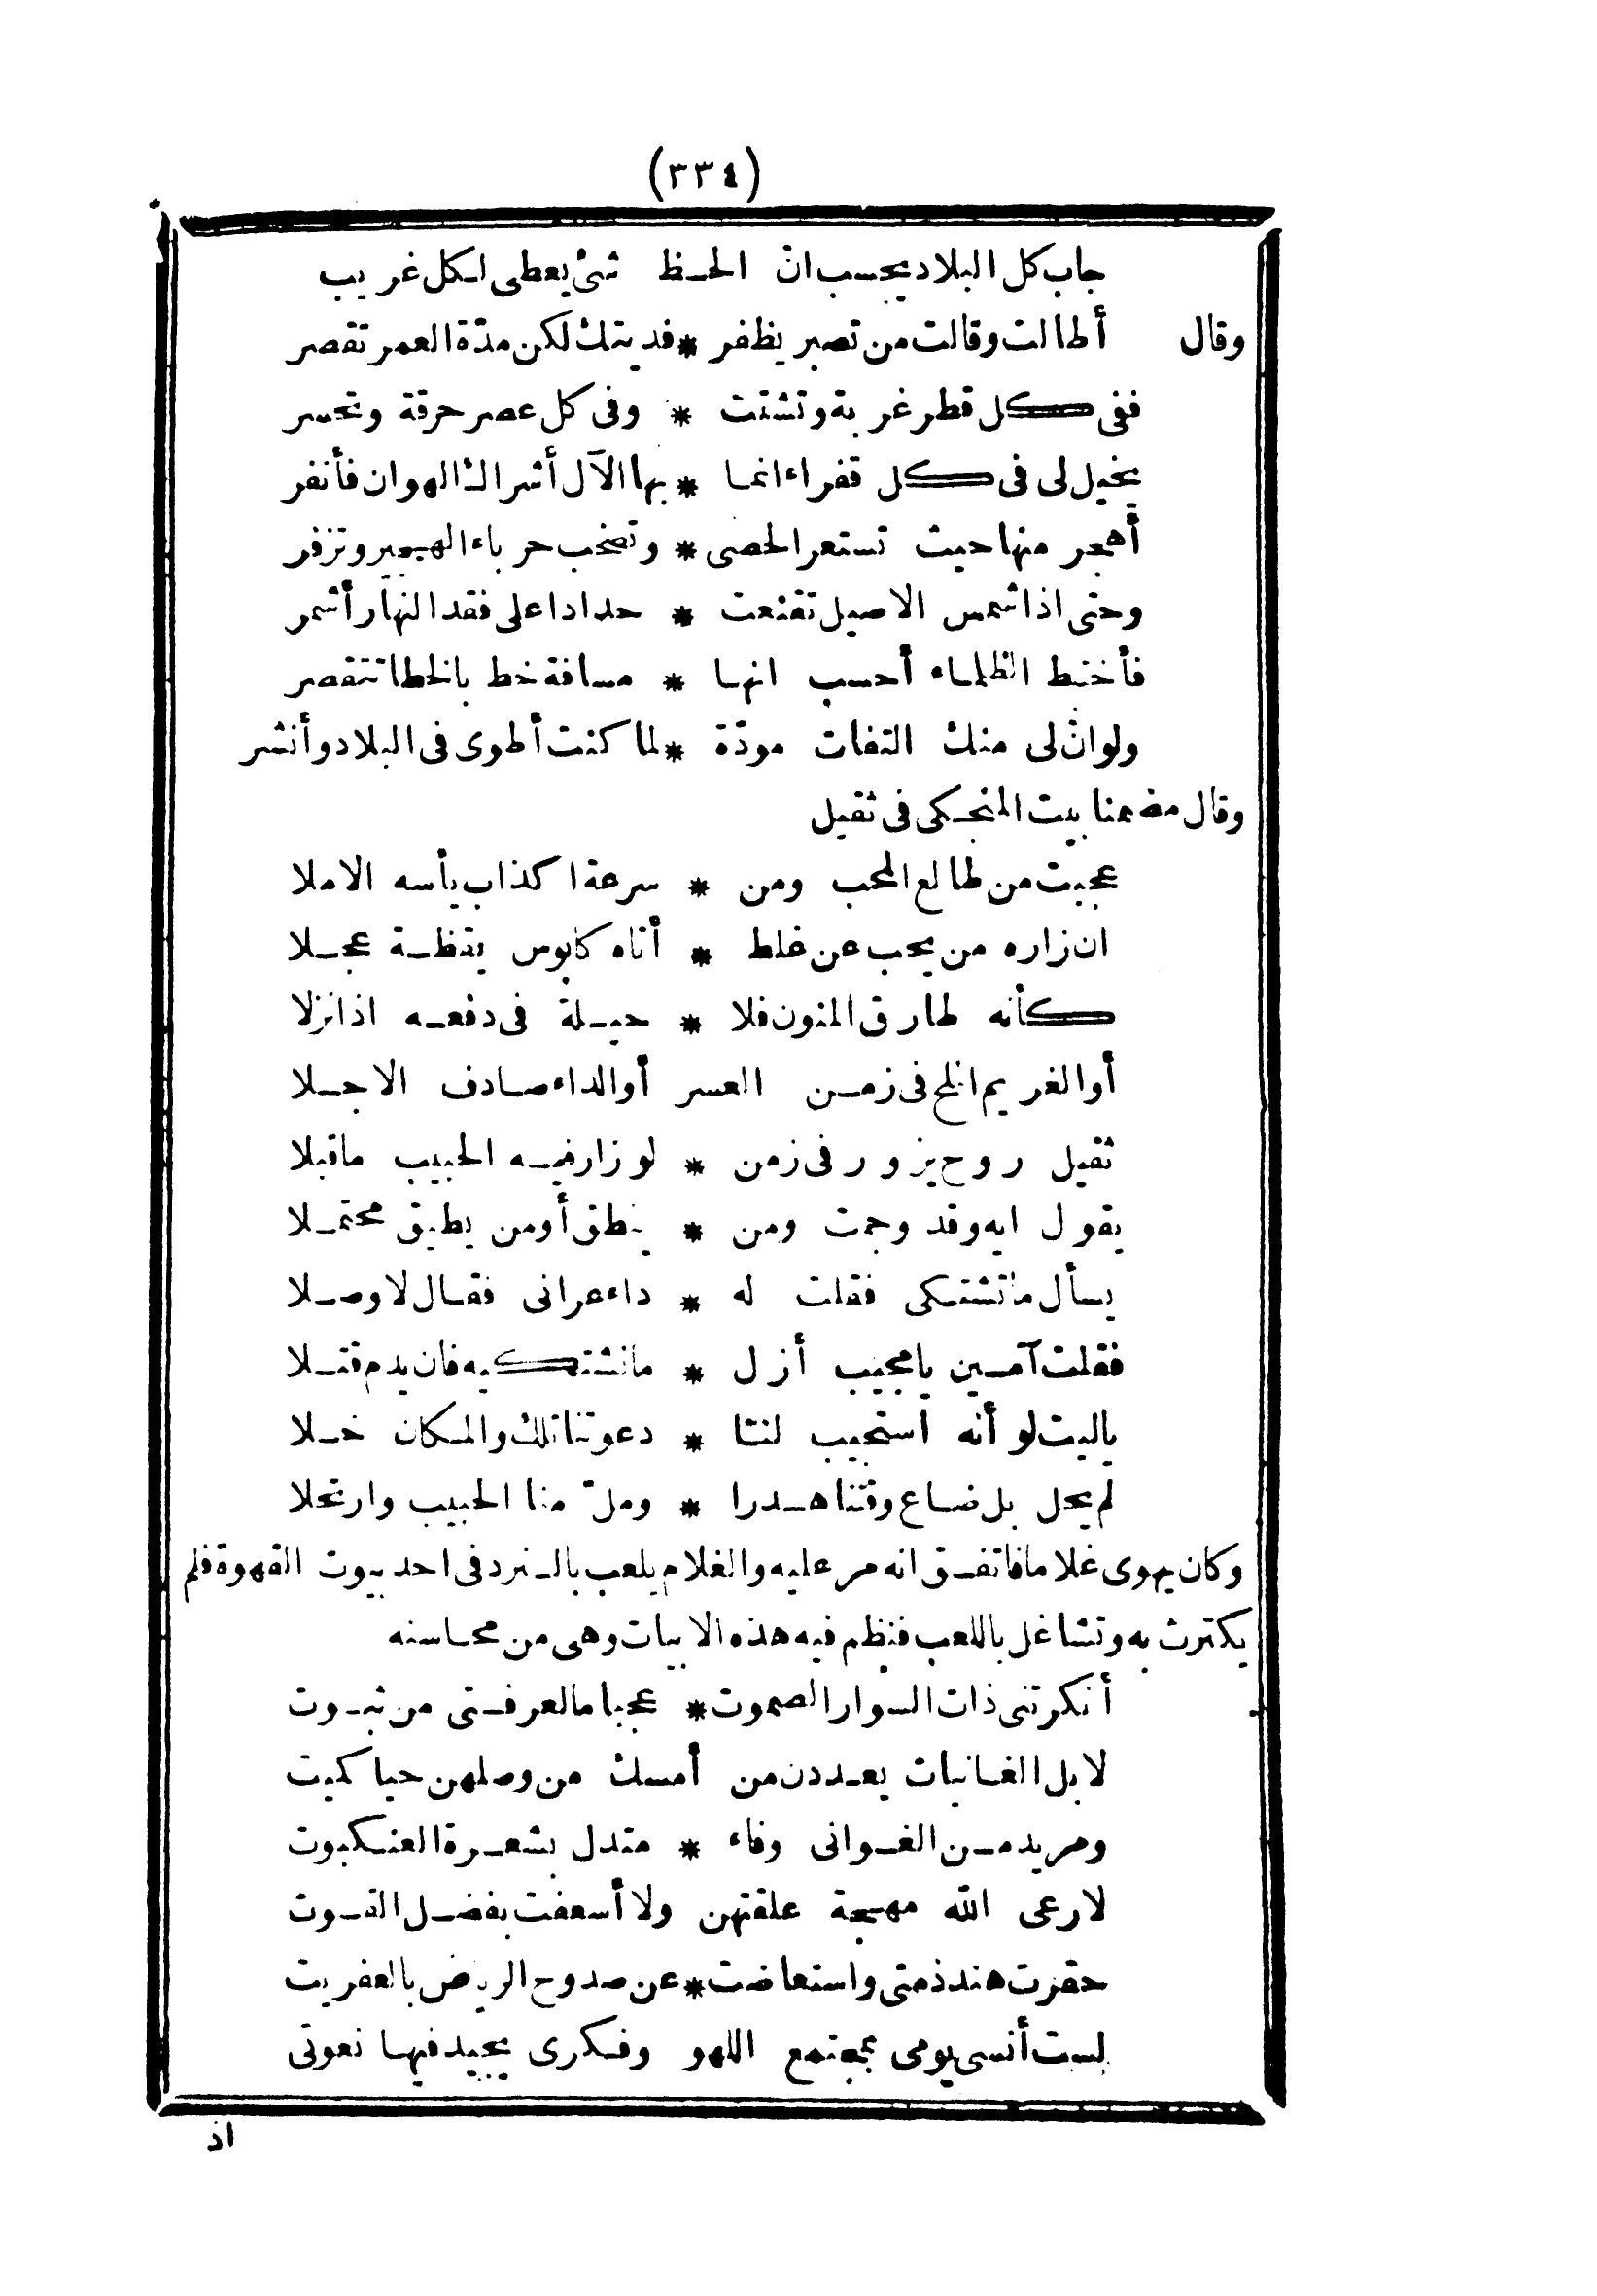 (٣٣٤)
جاب كل البلاد يحسب ان الحظ شئ يعطى لكل غريب
وقال أطالت وقالت من تصبر يظفر * فديتك لكن مدّة العمر تقصر
ففى كل قطر غربة وتشتت * وفى كل عصر حرقة وتحسر
يخيل لى فى كل قفراء انما * بها الآل أشراك الهوان فأنفر
أهجر منها حيث تستعر الحصى * وتصخب حرباء الهجير وتزفر
وحتى اذا شمس الاصيل تقنعت * حدادا على فقد النهار أشمر
فأختبط الظلماء أحسب انها * مسافة خط بالخطا تتقصر
ولوانّ لى منك التفات مودّة * لما كنت أطوى فى البلاد وأنشر
وقال مضمنا بيت المنجكى فى ثقيل
عجبت من طالع المحب ومن * سرعة اكذاب يأسه الاملا
ان زاره من يحب عن غلط * أتاه كابوس يقظة عجلا
كأنه طارق المنون فلا * حيلة فى دفعه اذا نزلا
أو الغريم الملح فى زمن العسر أو الداء صادف الاجلا
ثقيل روح يزور فى زمن * لو زار فيه الحبيب ما قبلا
يقول ايه وقد وجمت ومن * ينطق أو من يطيق محتملا
يسأل ما تشتكى فقلت له * داء عرانى فقال لا وصلا
فقلت آمين يا مجيب أزل * ما نشتكيه فان يدم قتلا
ياليت لو أنه استجيب لنا * دعوتنا تلك والمكان خلا
لم يحل بل ضاع وقتنا هدرا * وملّ منا الحبيب وارتحلا
وكان يهوى غلاما فاتفق انه مر عليه والغلام يلعب بالنرد فى احد بيوت القهوة فلم
يكترث به وتشاغل باللعب فنظم فيه هذه الابيات وهى من محاسنه
أنكرتنى ذات السوار الصموت * عجبا ما لعرفتى من ثبوت
لا بل الغانيات يعددن من أمسك من وصلهن حيا كميت
ومريد من الغوانى وفاء * متدل بشعرة العنكبوت
لا رعى الله مهجة علقتهن ولا أسعفت بفضل القوت
حقرت هند ذمتى واستعاضت * عن صدوح الرياض بالعفريت
لست أنسى يومى بمجتمع اللهو وفكرى يجيد فيها نعوتى
اذ